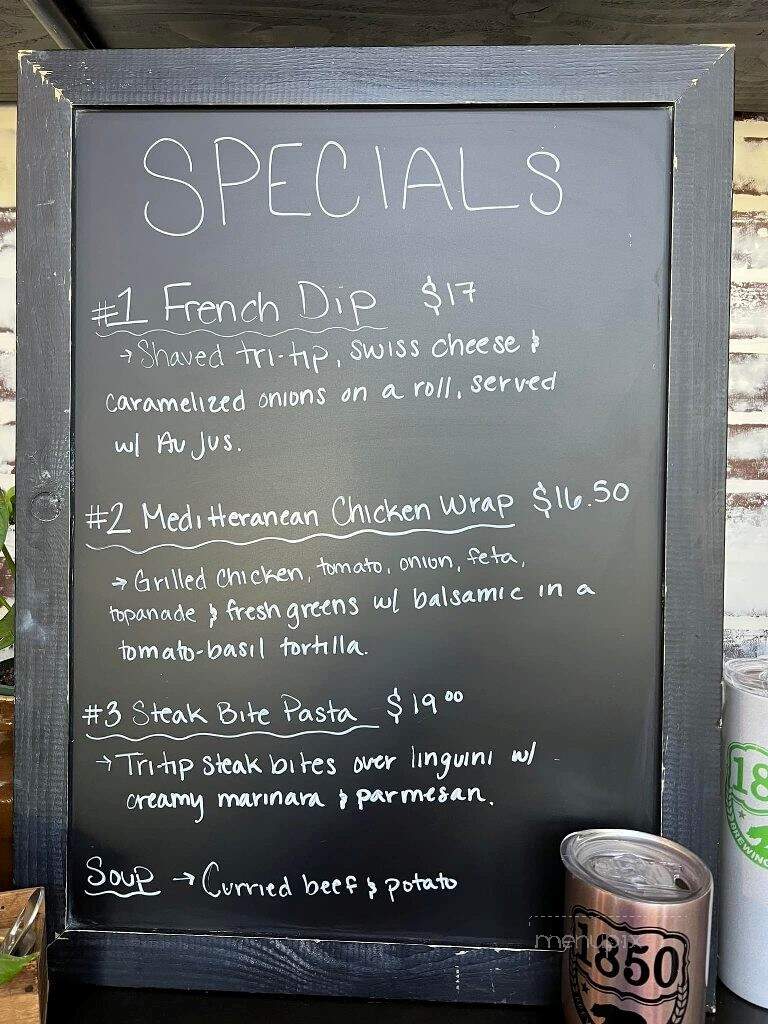 SPECIALS
#1 French Dip $17
→ Shaved tri-tip, swiss cheese &
caramelized onions on a roll, served
w/ Au Jus.
#2 Meditteranean Chicken Wrap $16.50
→ Grilled chicken, tomato, onion, feta,
topanade & fresh greens w/ balsamic in a
tomato-basil tortilla.
#3 Steak Bite Pasta $19.00
→ Tri-tip steak bites over linguini w/
creamy marinara & parmesan.
Soup → Curried beef & potato
menupix
1850
18
BREWING